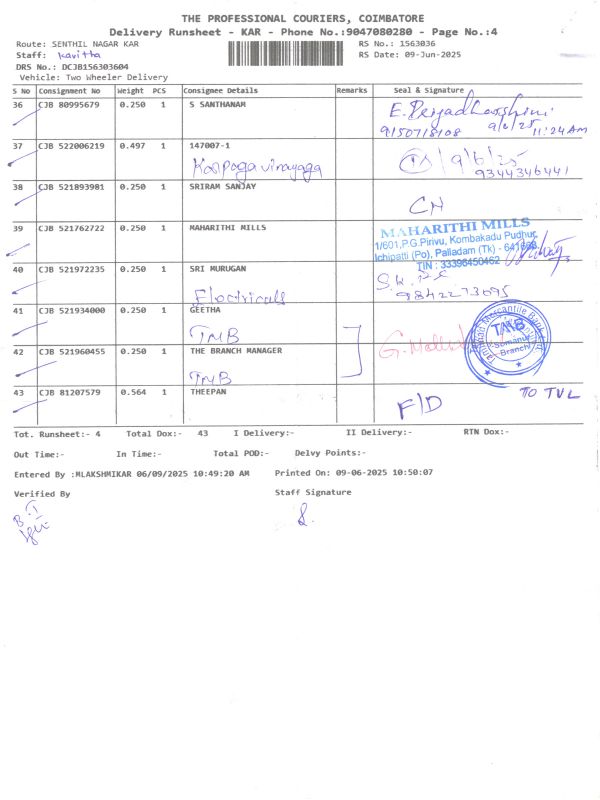 THE PROFESSIONAL COURIERS, COIMBATORE
Delivery Runsheet - KAR - Phone No.:9047080280 - Page No.:4
Route: SENTHIL NAGAR KAR RS No.: 1563036
Staff: Kavitha RS Date: 09-Jun-2025
DRS No.: DCJB156303604
Vehicle: Two Wheeler Delivery
S No Consignment No Weight PCS Consignee Details Remarks Seal & Signature
36 CJB 80995679 0.250 1 S SANTHANAM E. Priyadharshini
9150718108 9/6/25 11:24 AM
37 CJB 522006219 0.497 1 147007-1 9/6/25
Karpaga vinayaga 9344346441
38 CJB 521893981 0.250 1 SRIRAM SANJAY
CN
39 CJB 521762722 0.250 1 MAHARITHI MILLS MAHARITHI MILLS
1/601,P.G.Pirivu, Kombakadu Pudhur,
Ichipatti (Po), Palladam (Tk) - 641668.
TIN : 33396450462
40 CJB 521972235 0.250 1 SRI MURUGAN
Electricals 9842273695
41 CJB 521934000 0.250 1 GEETHA
TMB
Tamilnad Mercantile Bank
TMB
Branch
42 CJB 521960455 0.250 1 THE BRANCH MANAGER
TMB
43 CJB 81207579 0.564 1 THEEPAN F/D TO TVL
Tot. Runsheet:- 4 Total Dox:- 43 I Delivery:- II Delivery:- RTN Dox:-
Out Time:- In Time:- Total POD:- Delvy Points:-
Entered By :MLAKSHMIKAR 06/09/2025 10:49:20 AM Printed On: 09-06-2025 10:50:07
Verified By Staff Signature